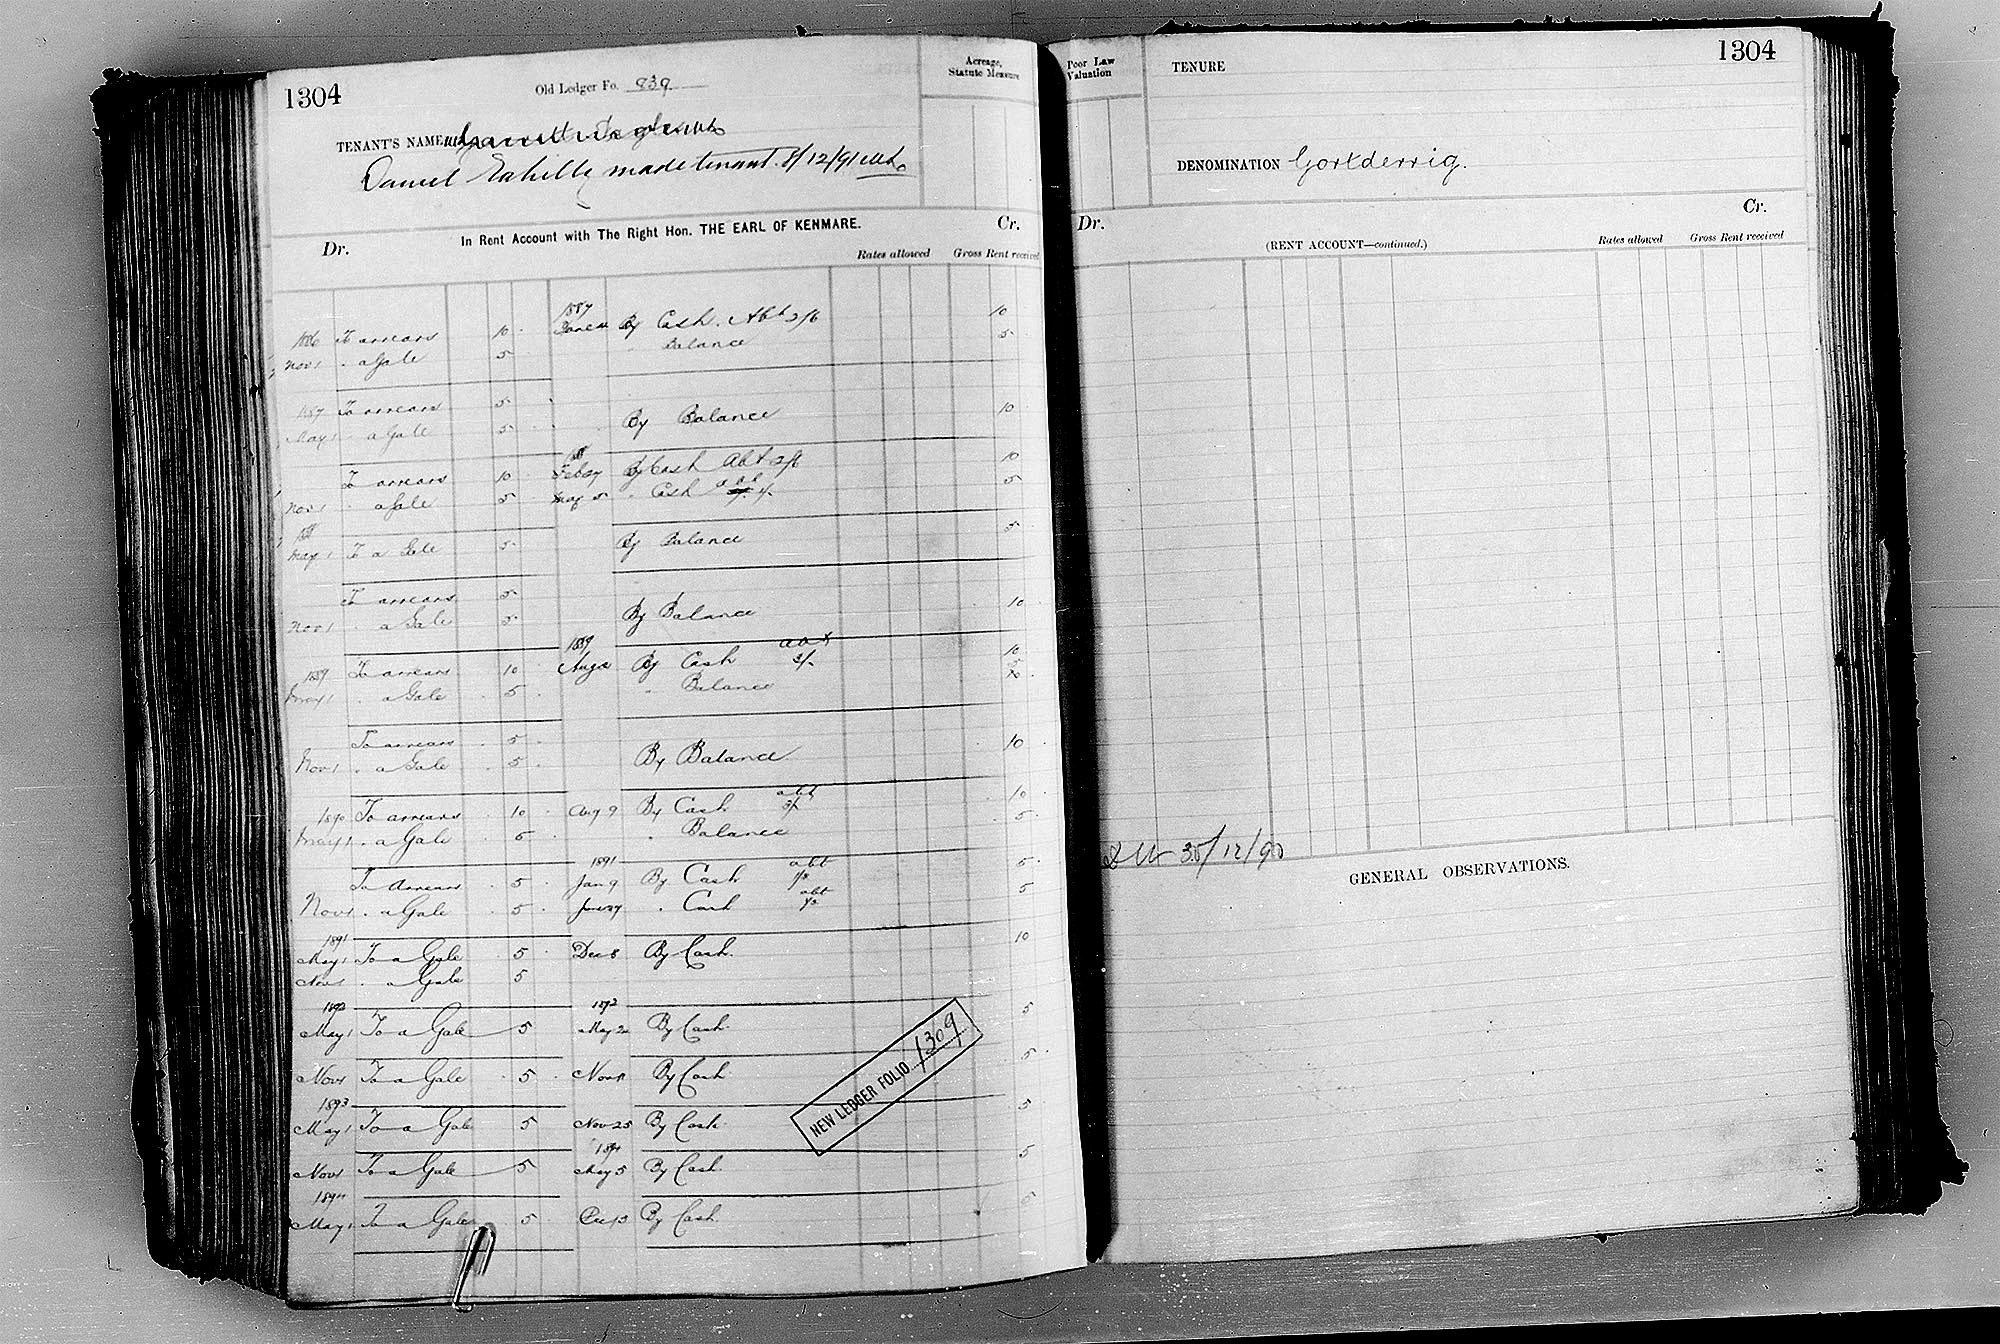 1304
Old Ledger Fo. 839
Acreage, Statute Measure
TENANT'S NAME
Daniel Eahilly made tenant. 8/12/91
In Rent Account with The Right Hon. THE EARL OF KENMARE.
Dr.
Cr.
Rates allowed Gross Rent received
1886 To arrears 10 1887 June By Cash. Abt 2/6 10
Nov 1 . a Gale 5 " Balance 5
1887 To arrears 5
May 1 . a Gale 5 By Balance 10
To arrears 10 88 Feb 27 By Cash Abt 2/6 10
Nov 1 a Gale 5 May 5 " Cash abt 5
88
May 1 To a Gale 5 By Balance 5
To arrears 5
Nov 1 . a Gale 5 By Balance 10
1889 To arrears 10 1889 Aug By Cash abt 3/- 10
May 1 . a Gale 5 " Balance 5
To arrears 5
Nov 1 . a Gale 5 By Balance 10
1890 To arrears 10 Aug 9 By Cash abt 3/- 10
May 1 . a Gale 5 " Balance 5
To Arrears 5 1891 Jan 9 By Cash abt 5
Nov 1 . a Gale 5 June 27 " Cash abt 5
1891
May 1 To a Gale 5 Dec 8 By Cash. 10
Nov 1 . a Gale 5
1892 1892
May 1 To a Gale 5 May 2 By Cash. 5
Nov 1 To a Gale 5 Nov By Cash 5
1893
May 1 To a Gale 5 Nov 25 By Cash 5
1894
Nov 1 To a Gale 5 May 5 By Cash 5
1894
May 1 To a Gale 5 Dec 13 By Cash 5
NEW LEDGER FOLIO 1309
1304
Poor Law Valuation
TENURE
DENOMINATION Gortderrig.
Dr.
Cr.
(RENT ACCOUNT—continued.)
Rates allowed Gross Rent received
30/12/90
GENERAL OBSERVATIONS.